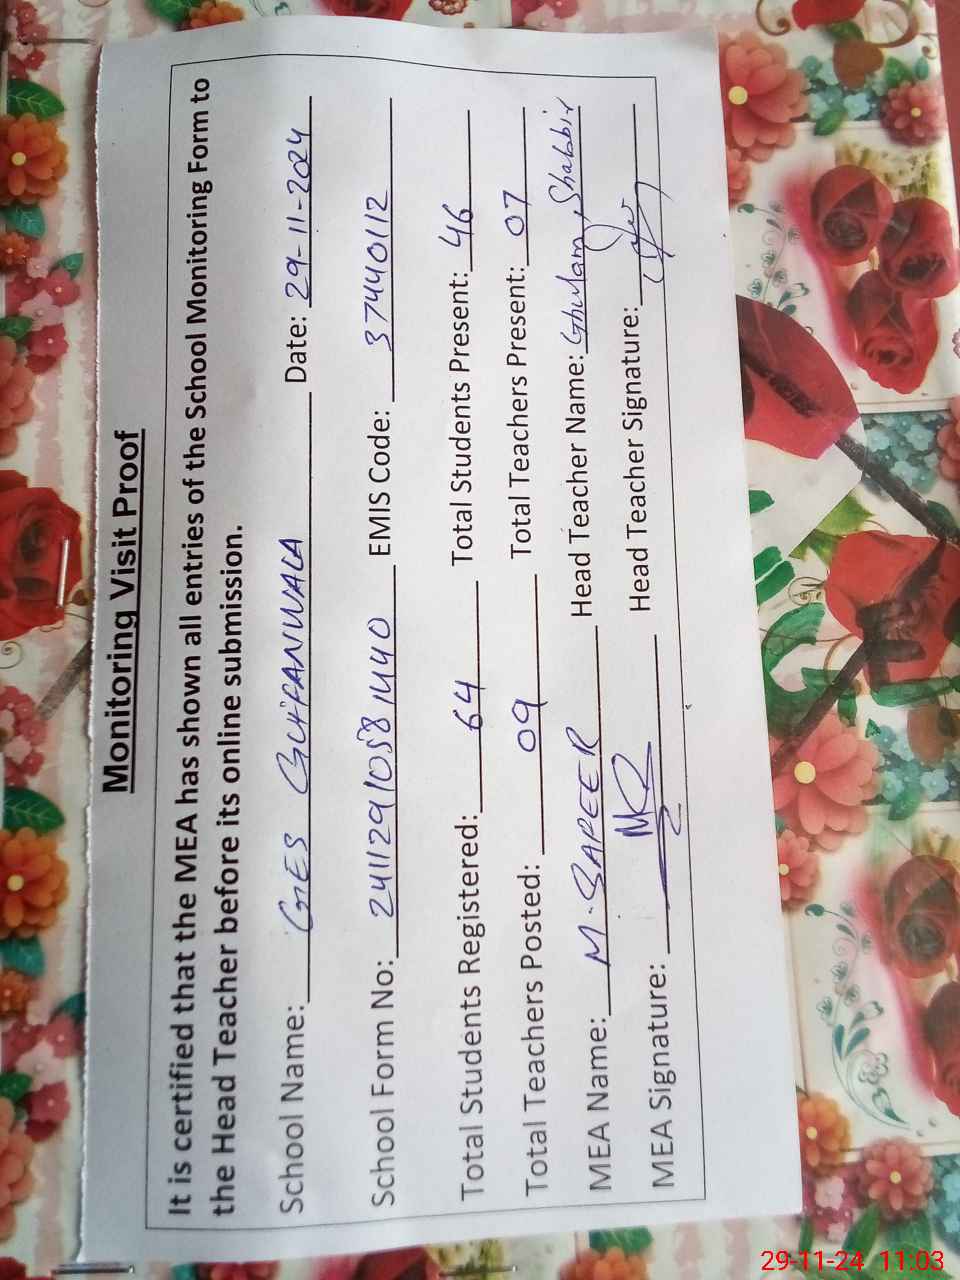 Monitoring Visit Proof
It is certified that the MEA has shown all entries of the School Monitoring Form to
the Head Teacher before its online submission.
School Name: GES GUFFANWALA Date: 29-11-2024
School Form No: 24112910581440 EMIS Code: 37440112
Total Students Registered: 64 Total Students Present: 46
Total Teachers Posted: 09 Total Teachers Present: 07
MEA Name: M. SAPEER Head Teacher Name: Ghulam Shabbir
MEA Signature: Head Teacher Signature:
29-11-24 11:03